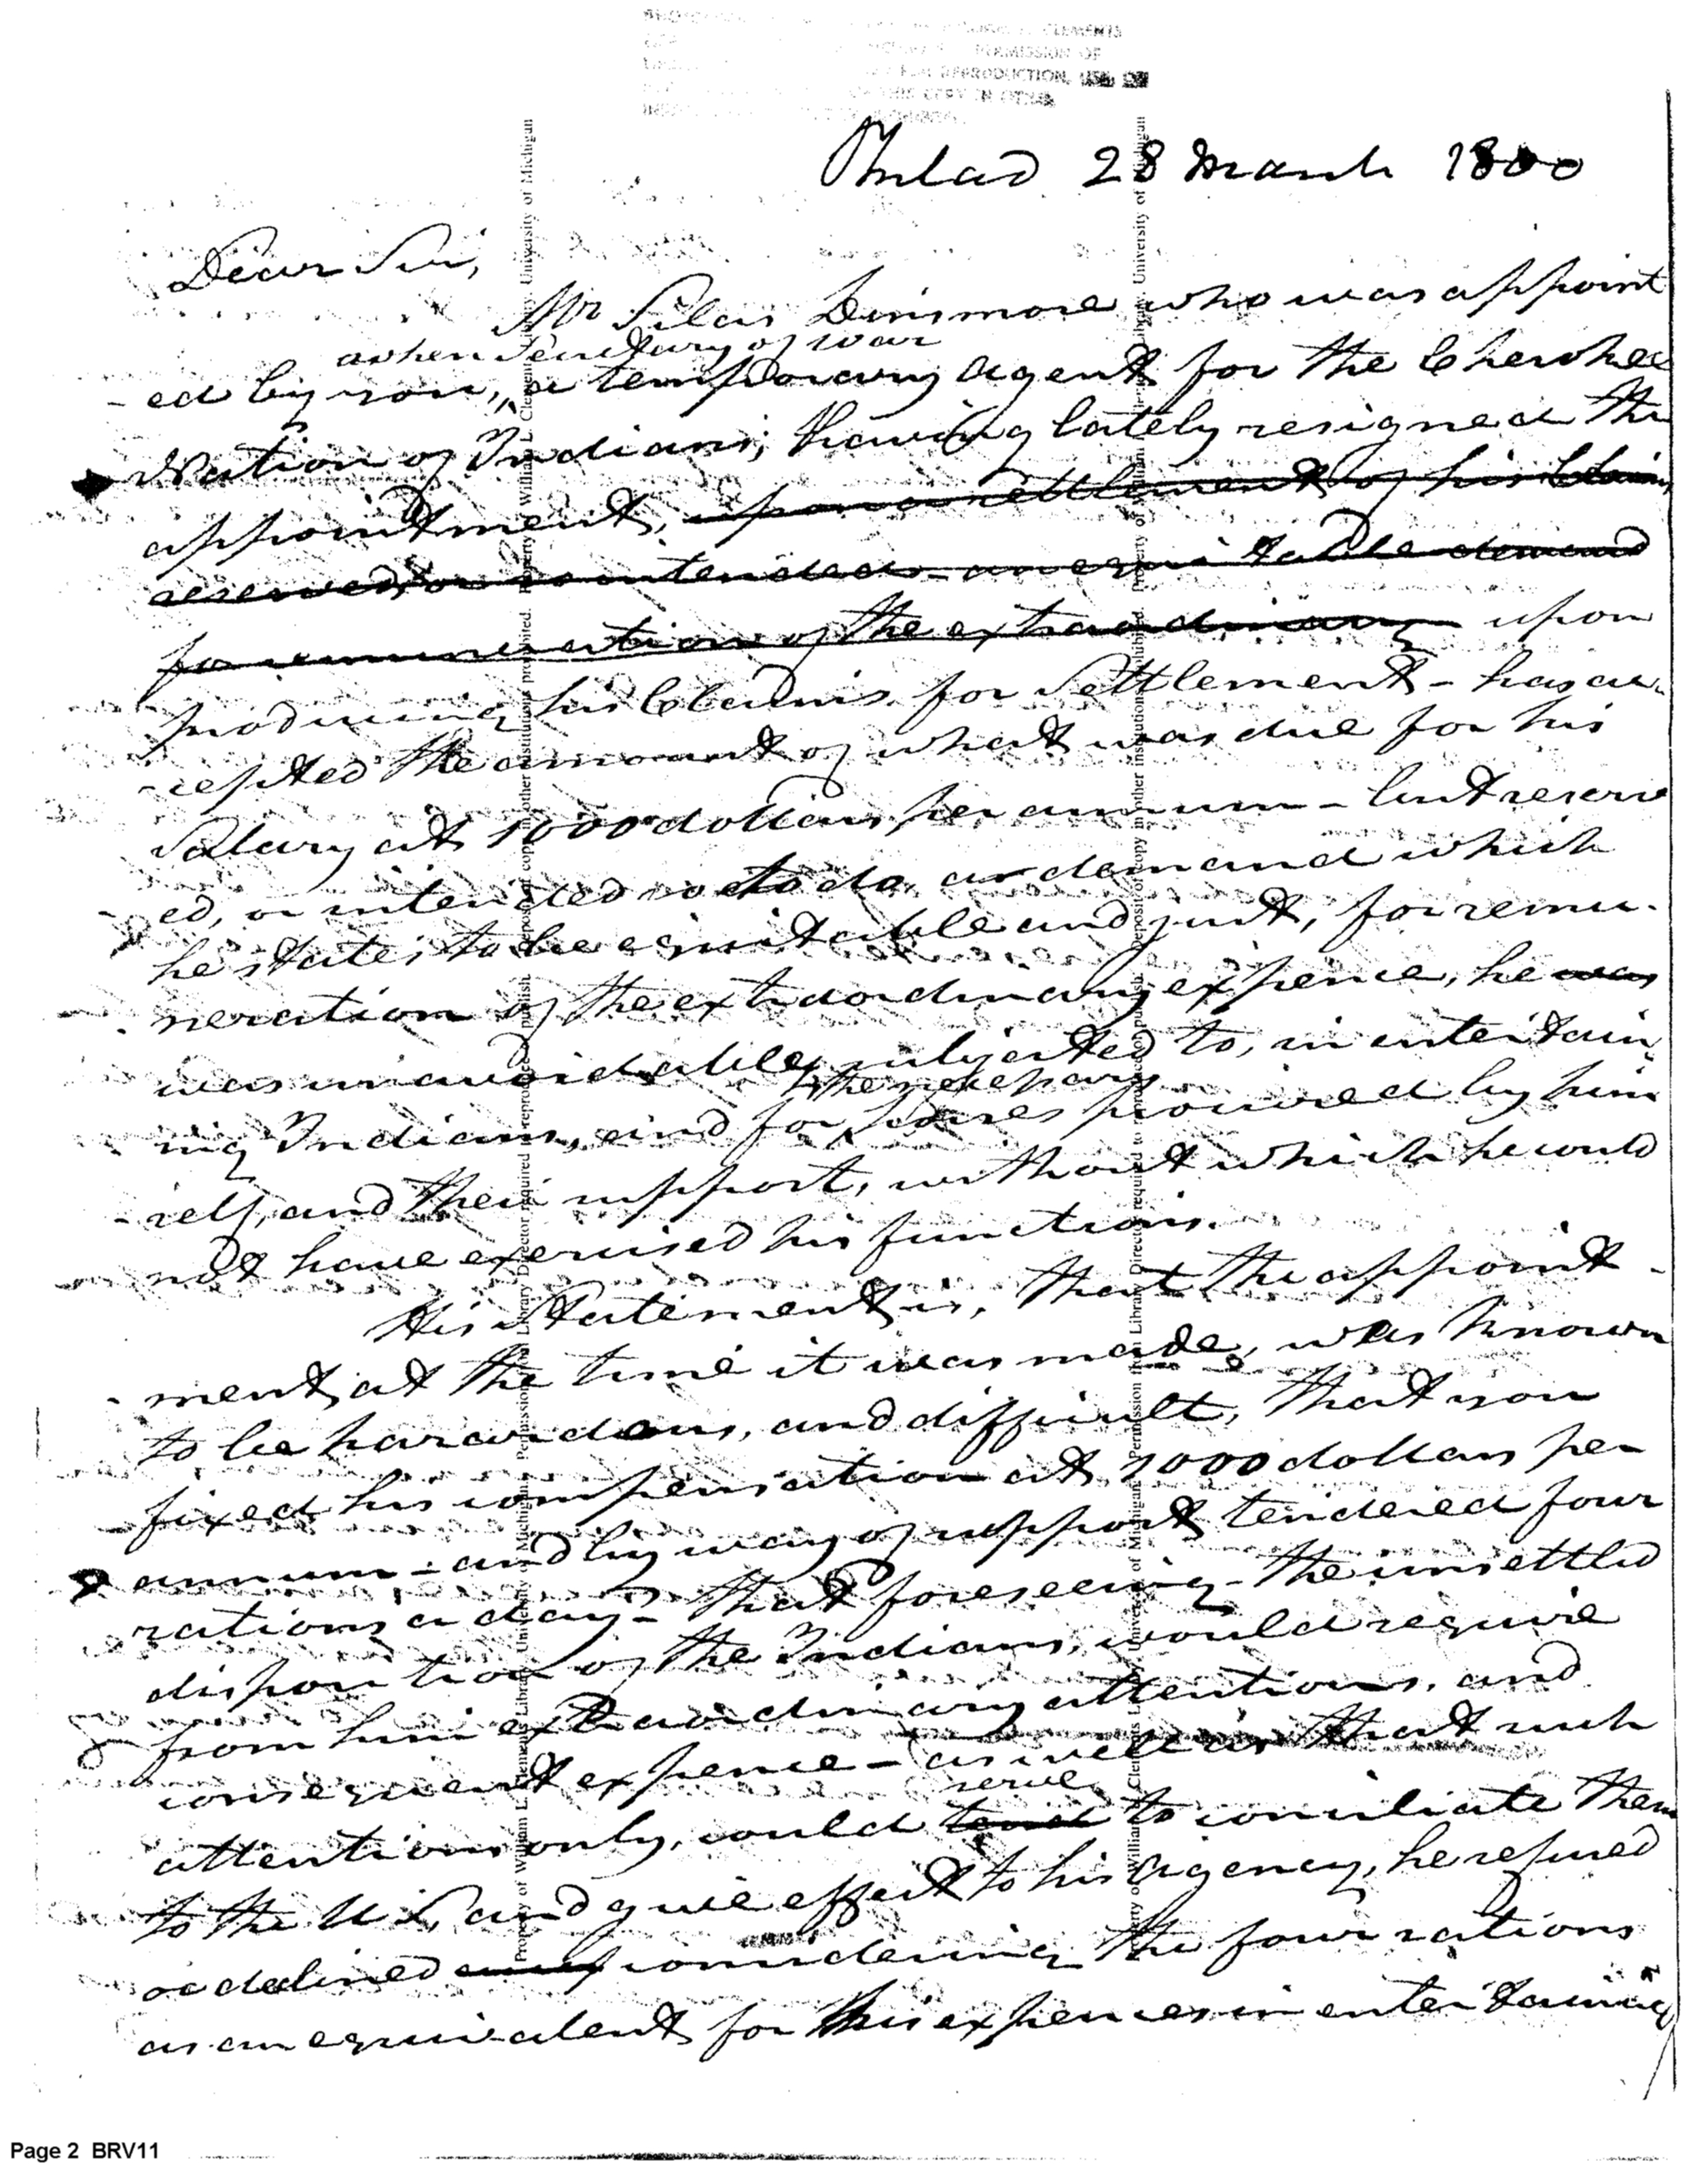 Philad 28 March 1800
Dear Sir,
Mr Silas Dinsmore who was appoint
when Secretary of War
ed by you, a temporary agent for the Cherokee
Nation of Indians, having lately resigned the
appointment, upon a settlement of his Claims
reserved, or so intended an equitable demand
for remuneration of the extraordinary upon
producing his Claims for Settlement - has ac-
cepted the amount of what was due for his
Salary at 1000 dollars per annum - but reserv
ed, or intended so to do, a demand which
he states to be equitable and just, for remu-
neration of the extraordinary expence, he was
was unavoidably subjected to, in entertain
the necessary
ing Indians, and for stores procured by him
self, and their support, without which he could
not have exercised his functions.
His Statement is, that the appoint-
ment, at the time it was made, was known
to be hazardous, and difficult, that you
fixed his compensation at 1000 dollars per
annum - and by way of support tendered four
rations a day - that foreseeing - the unsettled
disposition of the Indians, would require
from him extraordinary attentions, and
consequent expence - as well as that such
serve
attentions only, could tend to conciliate them
to the U.S. and give effect to his agency, he refused
or declined considering the four rations
as an equivalent for his expences in entertaining
Property of William L. Clements Library, University of Michigan
Page 2 BRV11